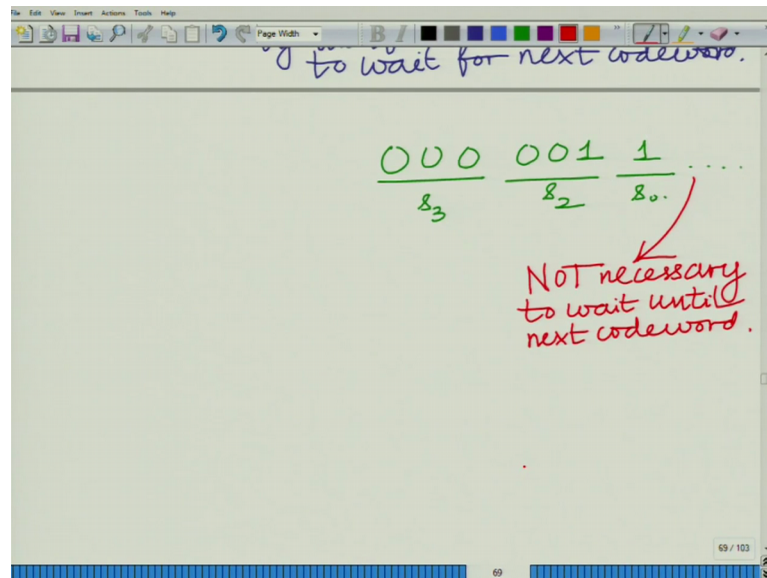 File Edit View Insert Actions Tools Help
Page Width
B I
to wait for next codeword.
000 001 1 ....
s3 s2 s0.
NOT necessary
to wait until
next codeword.
69 / 103
69